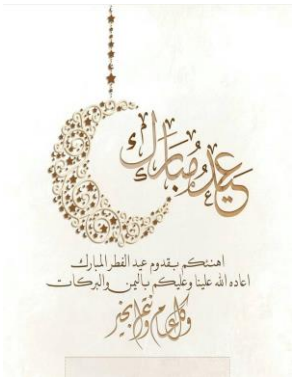 عيد مبارك
اهنئكم بقدوم عيد الفطر المبارك
اعاده الله علينا وعليكم باليمن والبركات
وكل عام وانتم بخير